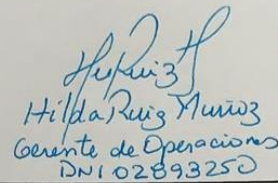 HRuiz
Hilda Ruiz Muñoz
Gerente de Operaciones
DNI 02893250